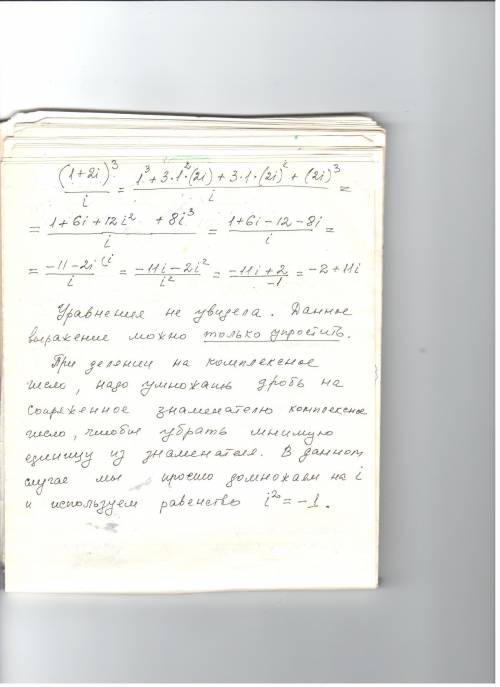 (1+2i)³/i = (1³+3·1²·(2i)+3·1·(2i)²+(2i)³)/i =
= (1+6i+12i² +8i³)/i = (1+6i−12−8i)/i =
= (−11−2i)/i (i = (−11i−2i²)/i² = (−11i+2)/−1 = −2+11i
Уравнения не увидела. Данное
выражение можно только упростить.
При делении на комплексное
число, надо умножать дробь на
сопряженное знаменателю комплексное
число, чтобы убрать мнимую
единицу из знаменателя. В данном
случае мы просто домножаем на i
и используем равенство i²=−1.